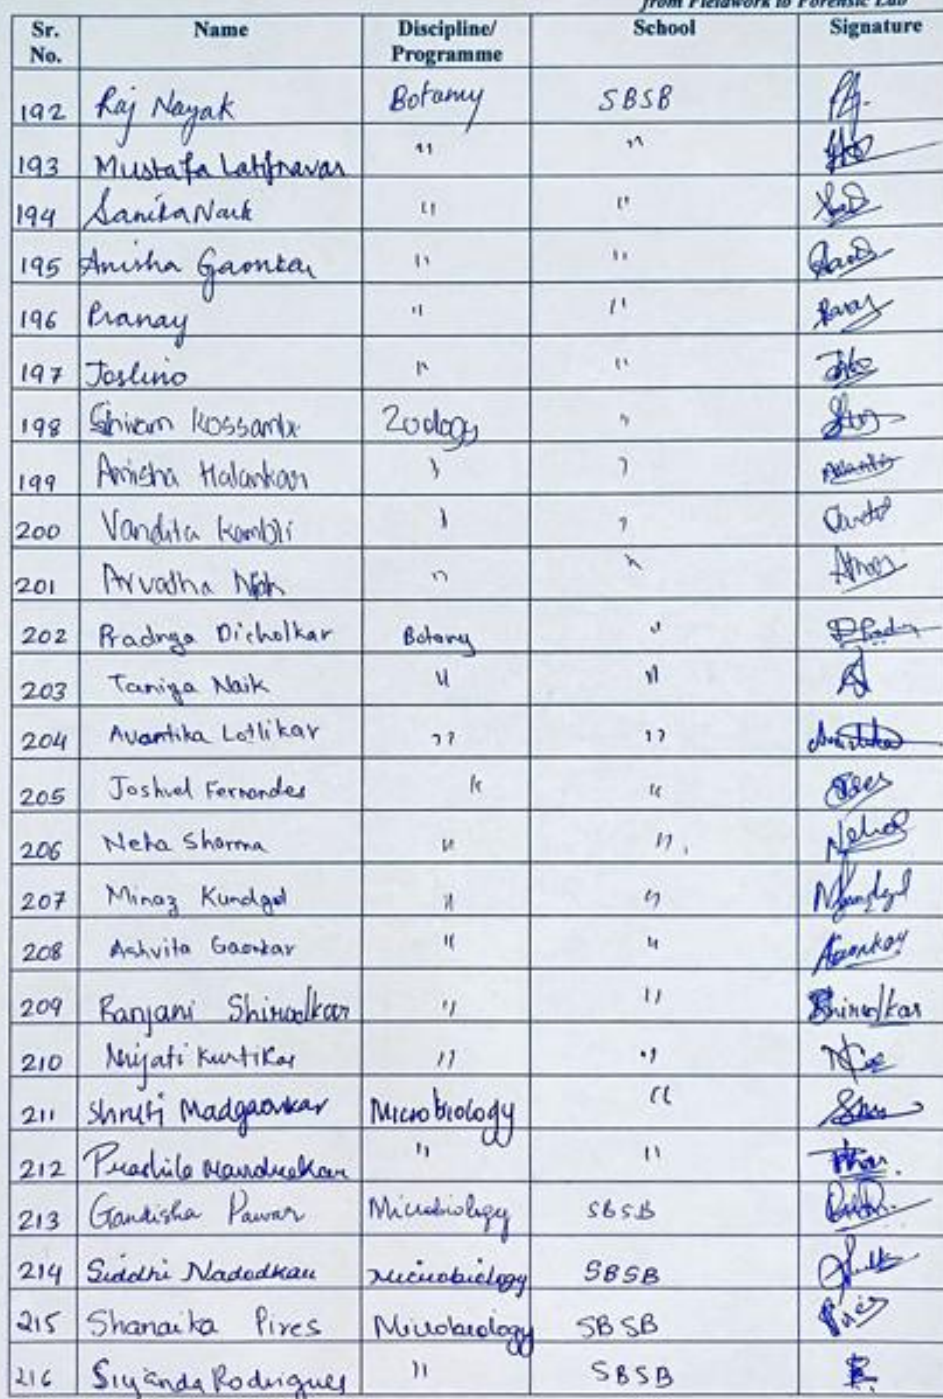 from Fieldwork to Forensic Lab
Sr. No. Name Discipline/ Programme School Signature
192 Raj Nayak Botany SBSB
193 Mustafa Latifnavar " "
194 Sanika Naik " "
195 Anisha Gaonkar " "
196 Pranay " "
197 Joslino " "
198 Shivam Kossambe Zoology "
199 Anisha Halankar " "
200 Vandita Kambli " "
201 Arvatha "  "
202 Pradnya Dicholkar Botany "
203 Taniya Naik " "
204 Avantika Lotlikar " "
205 Joshuel Fernandes " "
206 Neha Sharma " " Neha
207 Minaz Kundgol " "
208 Ashvita Gaonkar " " Gaonkar
209 Ranjani Shirodkar " " Shirodkar
210 Nrijati Kurtikar " "
211 Shruti Madgaonkar Microbiology "
212 Mandrekar " "
213 Pawar Microbiology SBSB
214 Siddhi Nadodkar Microbiology SBSB
215 Shanaika Pires Microbiology SBSB Pires
216 Rodrigues " SBSB